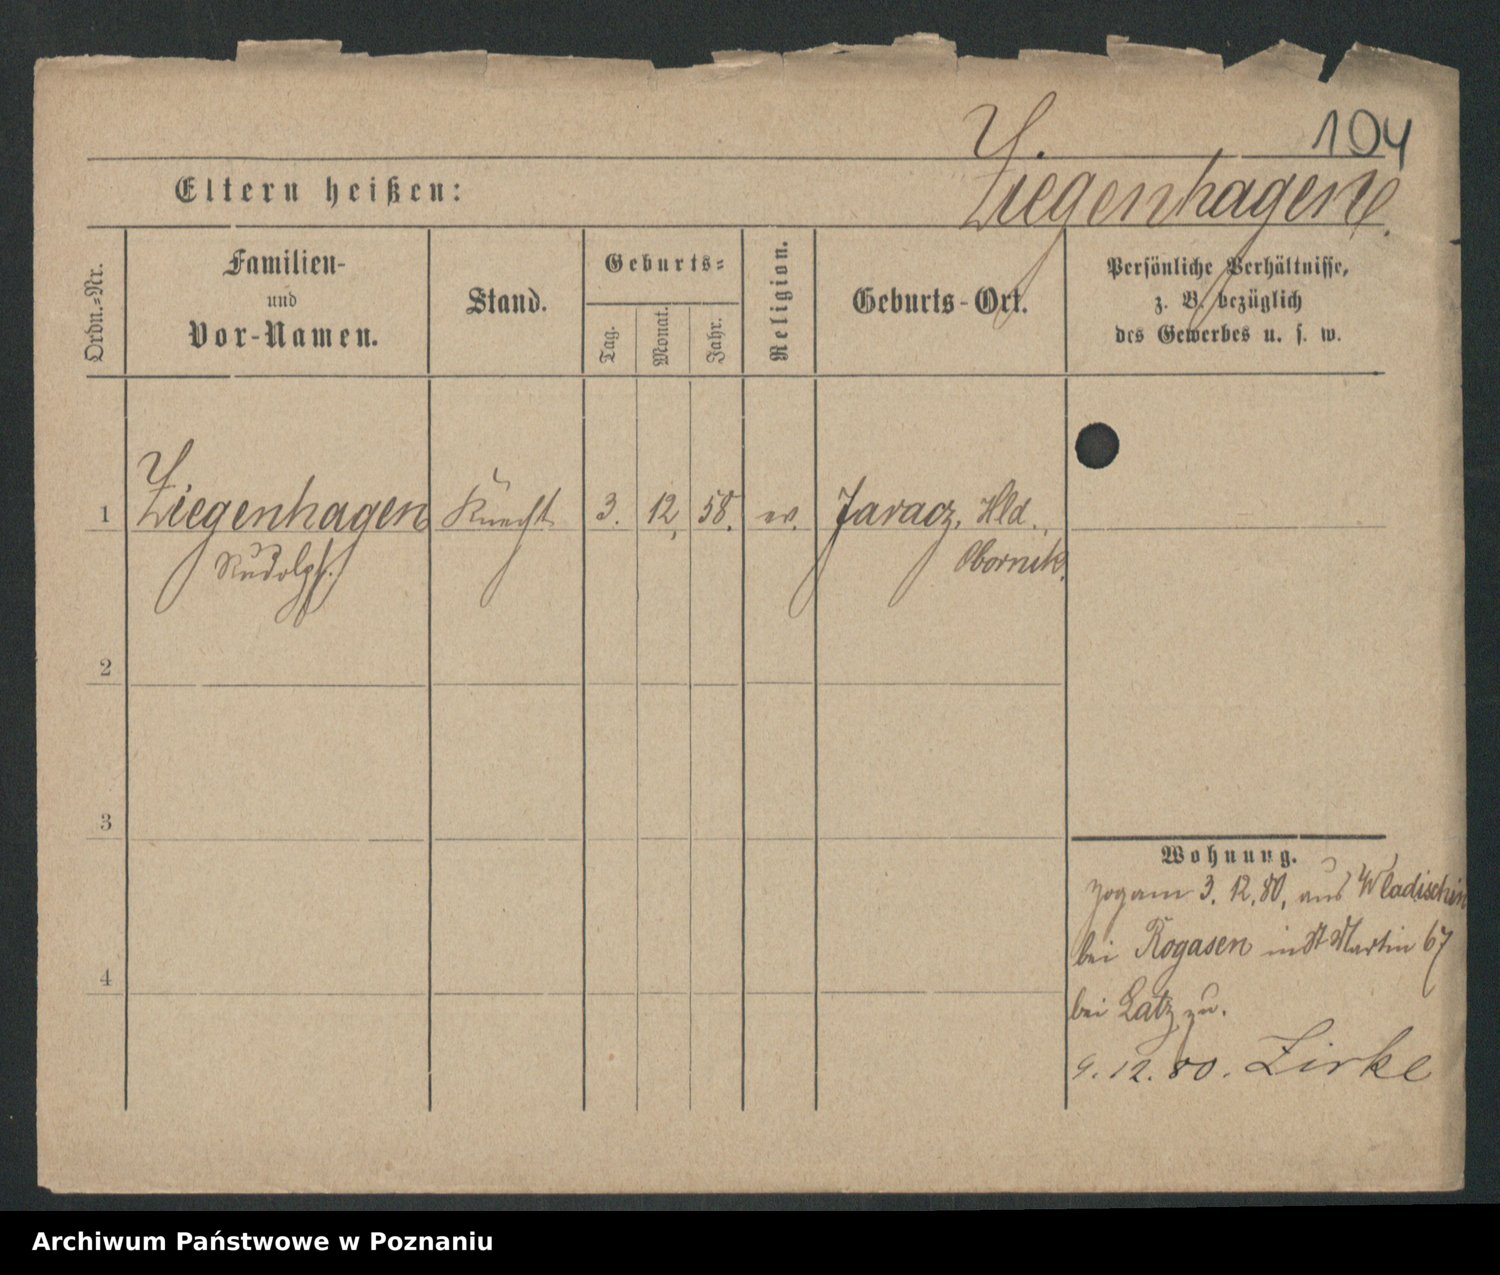 104
Z.
Eltern heißen:
Ziegenhagen.
Ordn.-Nr.
Familien-
und
Vor-Namen.
Stand.
Geburts-
Tag.
Monat.
Jahr.
Religion.
Geburts-Ort.
Persönliche Verhältnisse,
z. B. bezüglich
des Gewerbes u. s. w.
1
Ziegenhagen
Rudolph.
Knecht
3.
12.
58.
ev.
Jaracz, Hld.
Obornik.
2
3
4
Wohnung.
zog am 3. 12. 80, aus Wladischin
bei Rogasen in St Martin 67
bei Latz zu.
9. 12. 80. Zirke
Archiwum Państwowe w Poznaniu